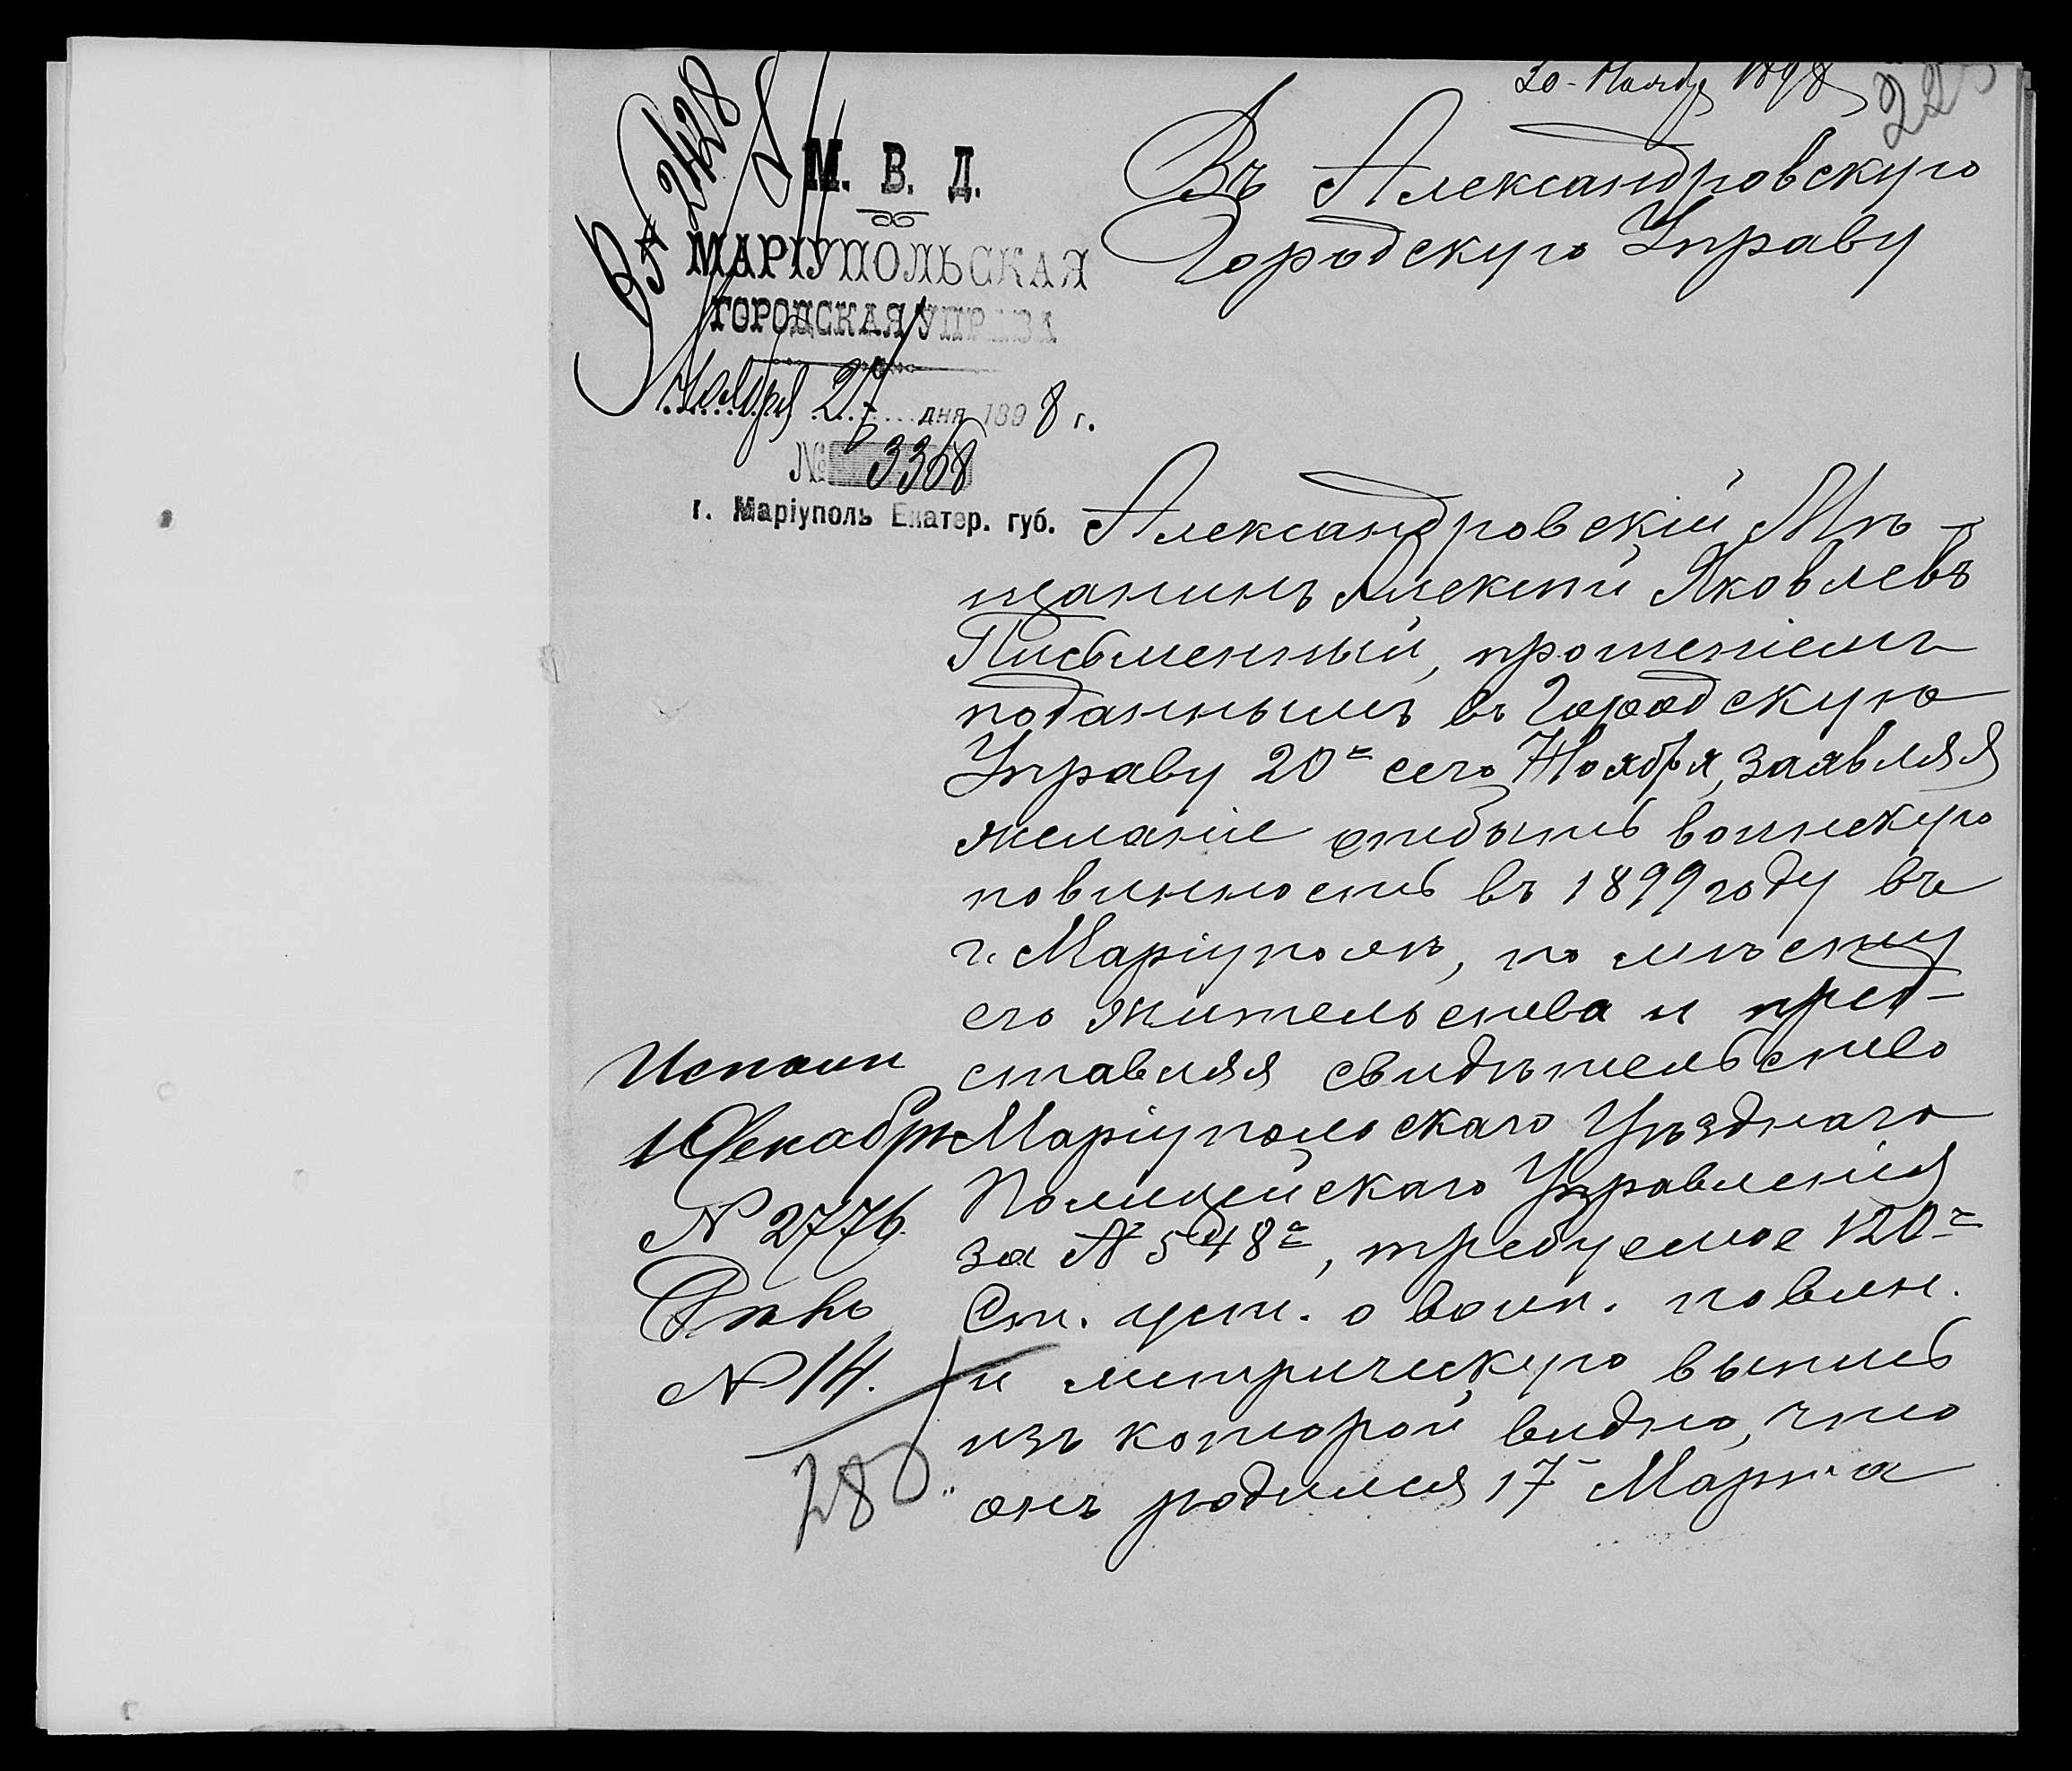 30 Ноября 1898
225
Вх № 2428
М. В. Д.
МАРІУПОЛЬСКАЯ
ГОРОДСКАЯ УПРАВА
Ноября 27 дня 1898 г.
№ 3368
г. Маріуполь Екатер. губ.
Въ Александровскую
Городскую Управу
Александровскій Мѣ-
щанинъ Алексѣй Яковлевъ
Письменный, прошеніемъ
поданнымъ въ Городскую
Управу 20го сего Ноября, заявляя
желаніе отбыть воинскую
повинность въ 1899 году въ
г. Маріуполѣ, по мѣсту
его жительства и пред-
ставляя свидѣтельство
Маріупольскаго Уѣзднаго
Полицейскаго Управленія
за № 548м, требуемое 120ю
Ст. уст. о воин. повин.
и метрическую выпись
изъ которой видно, что
онъ родился 17 Марта
Исполн
1 Декабря
№ 2776
Дѣло
№ 14.
280